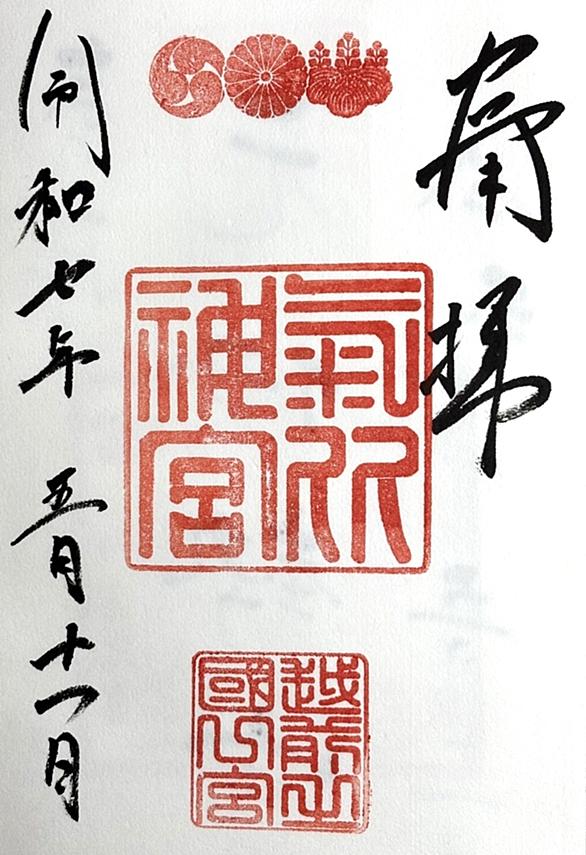 拝
氣比
神宮
越前之
國一宮
和七年 五月十一月